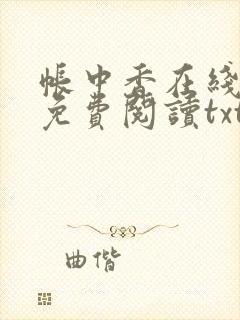 帳中香在綫
免費閱讀txt
曲偕